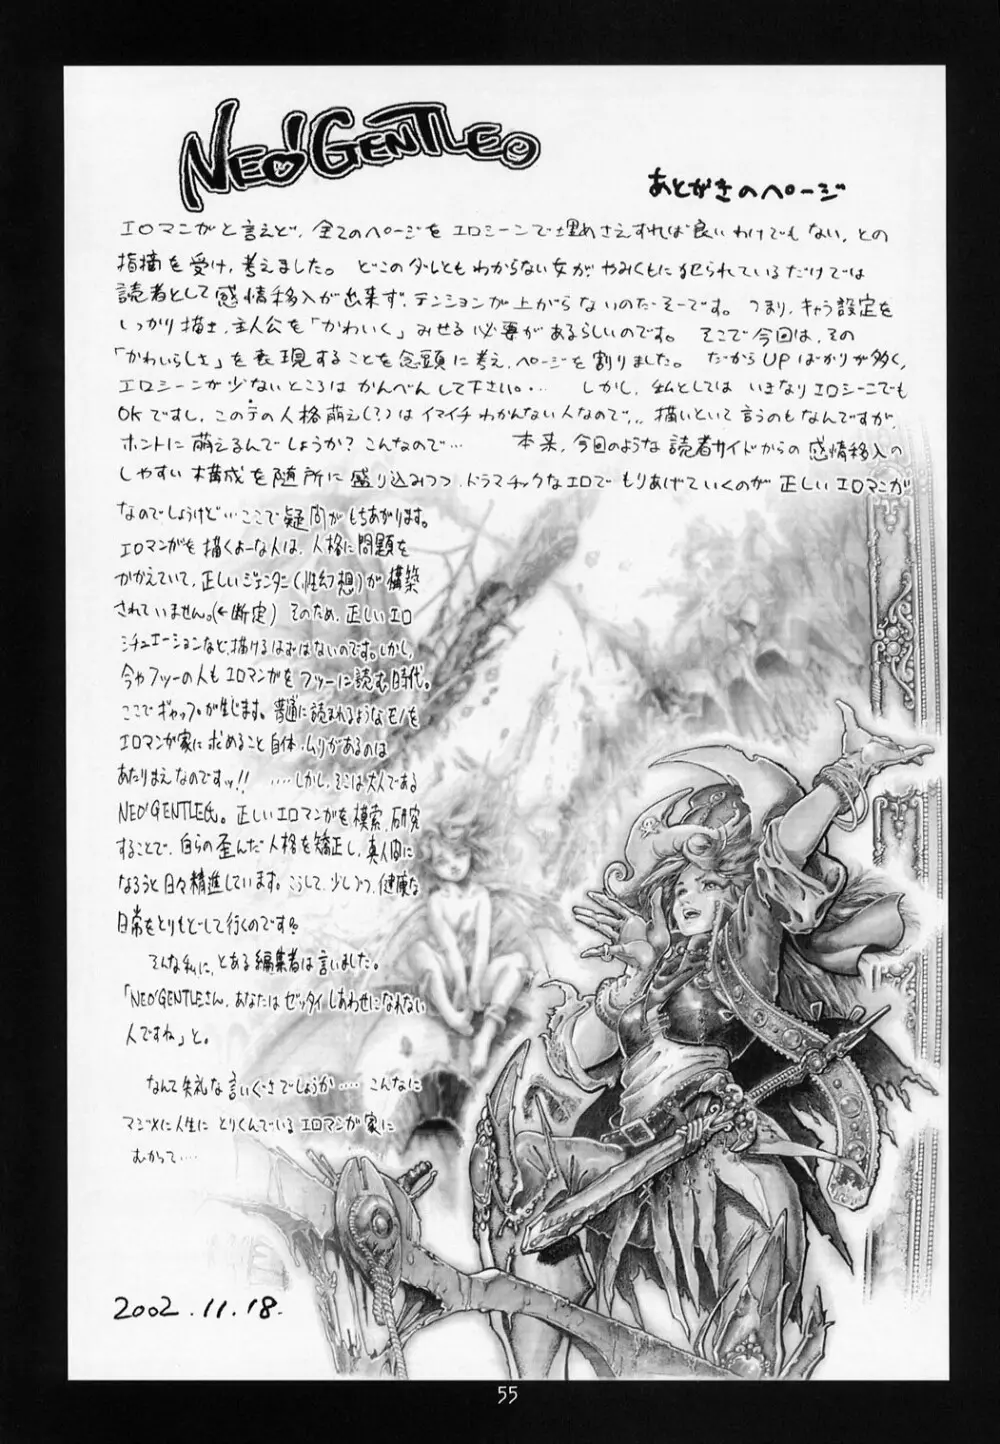 NEO'GENTLE
あとがきのページ
エロマンガと言えど、全てのページをエロシーンで埋めさえすれば良いわけでもない、との
指摘を受け、考えました。 どこのダレともわからない女がやみくもに犯られているだけでは
読者として感情移入が出来ず、テンションが上がらないのだそーです。 つまり、キャラ設定を
しっかり描き、主人公を「かわいく」みせる必要があるらしいのです。 そこで今回は、その
「かわいらしさ」を表現することを念頭に考え、ページを割りました。 だからUPばかりが多く、
エロシーンが少ないところはかんべんして下さい。… しかし、私としてはいきなりエロシーンでも
OKですし、このテの人格萌え(?)はイマイチわかんない人なので… 描いといて言うのもなんですが、
ホントに萌えるんでしょうか? こんなので… 本来、今回のような読者サイドからの感情移入の
しやすい構成を随所に盛り込みつつ、ドラマチックなエロでもりあげていくのが正しいエロマンガ
なのでしょうけど… ここで疑問がもちあがります。
エロマンガを描くよーな人は、人格に問題を
かかえていて、正しいジェンダー(性幻想)が構築
されていません。(←断定) そのため、正しいエロ
シチュエーションなど、描けるはずはないのです。しかし、
今やフツーの人もエロマンガをフツーに読む時代。
ここでギャップが生じます。普通に読まれるようなモノを
エロマンガ家に求めること自体、ムリがあるのは
あたりまえなのですッ!! ……しかし、そこは大人である
NEO'GENTLE氏。正しいエロマンガを模索、研究
することで、自らの歪んだ人格を矯正し、真人間に
なろうと日々精進しています。こうして、少しづつ、健康な
日常をとりもどして行くのです。
そんな私に、とある編集者は言いました。
「NEO'GENTLEさん、あなたはゼッタイしあわせになれない
人ですね」と。
なんて失礼な言いぐさでしょうか…… こんなに
マジメに人生にとりくんでいるエロマンガ家に
むかって……
2002.11.18.
55